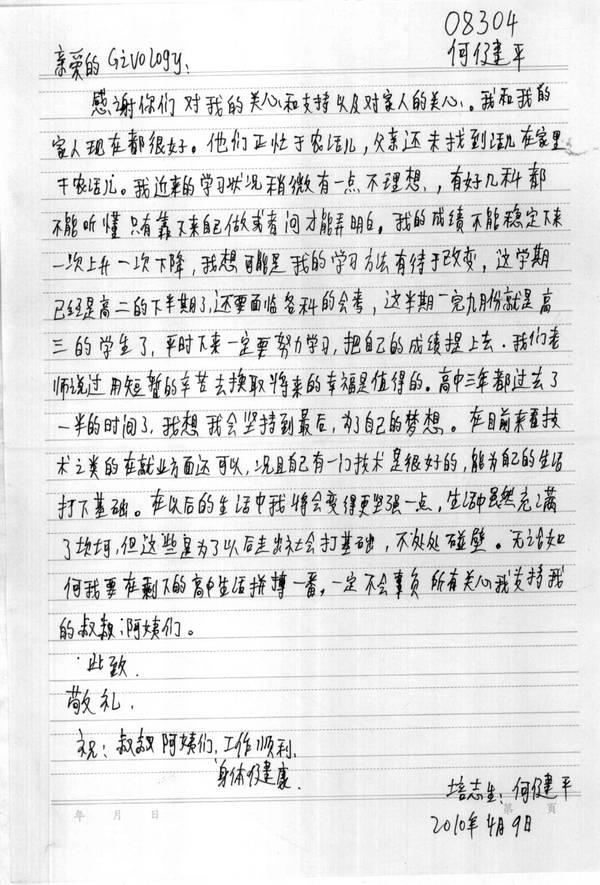 08304
何健平
亲爱的 Givology:
感谢你们对我的关心和支持以及对家人的关心。我和我的
家人现在都很好。他们正忙于农活儿，父亲还未找到活儿在家里
干农活儿。我近来的学习状况稍微有一点不理想，有好几科都
不能听懂只有靠下来自己做或者问才能弄明白。我的成绩不能稳定下来
一次上升一次下降，我想可能是我的学习方法有待于改变，这学期
已经是高二的下半期了，还要面临各科的会考，这半期一完九月份就是高
三的学生了，平时下来一定要努力学习，把自己的成绩提上去．我们老
师说过用短暂的辛苦去换取将来的幸福是值得的。高中三年都过去了
一半的时间了，我想我会坚持到最后，为了自己的梦想。在目前来看技
术之类的在就业方面还可以，况且自己有一门技术是很好的，能为自己的生活
打下基础。在以后的生活中我将会变得更坚强一点，生活中虽然充满
了坎坷，但这些是为了以后走出社会打基础，不处处碰壁。无论如
何我要在剩下的高中生活拼搏一番，一定不会辜负所有关心我支持我
的叔叔阿姨们。
此致
敬礼
祝：叔叔阿姨们，工作顺利
身体健康．
培志生：何健平
2010年4月9日
年 月 日
第 页